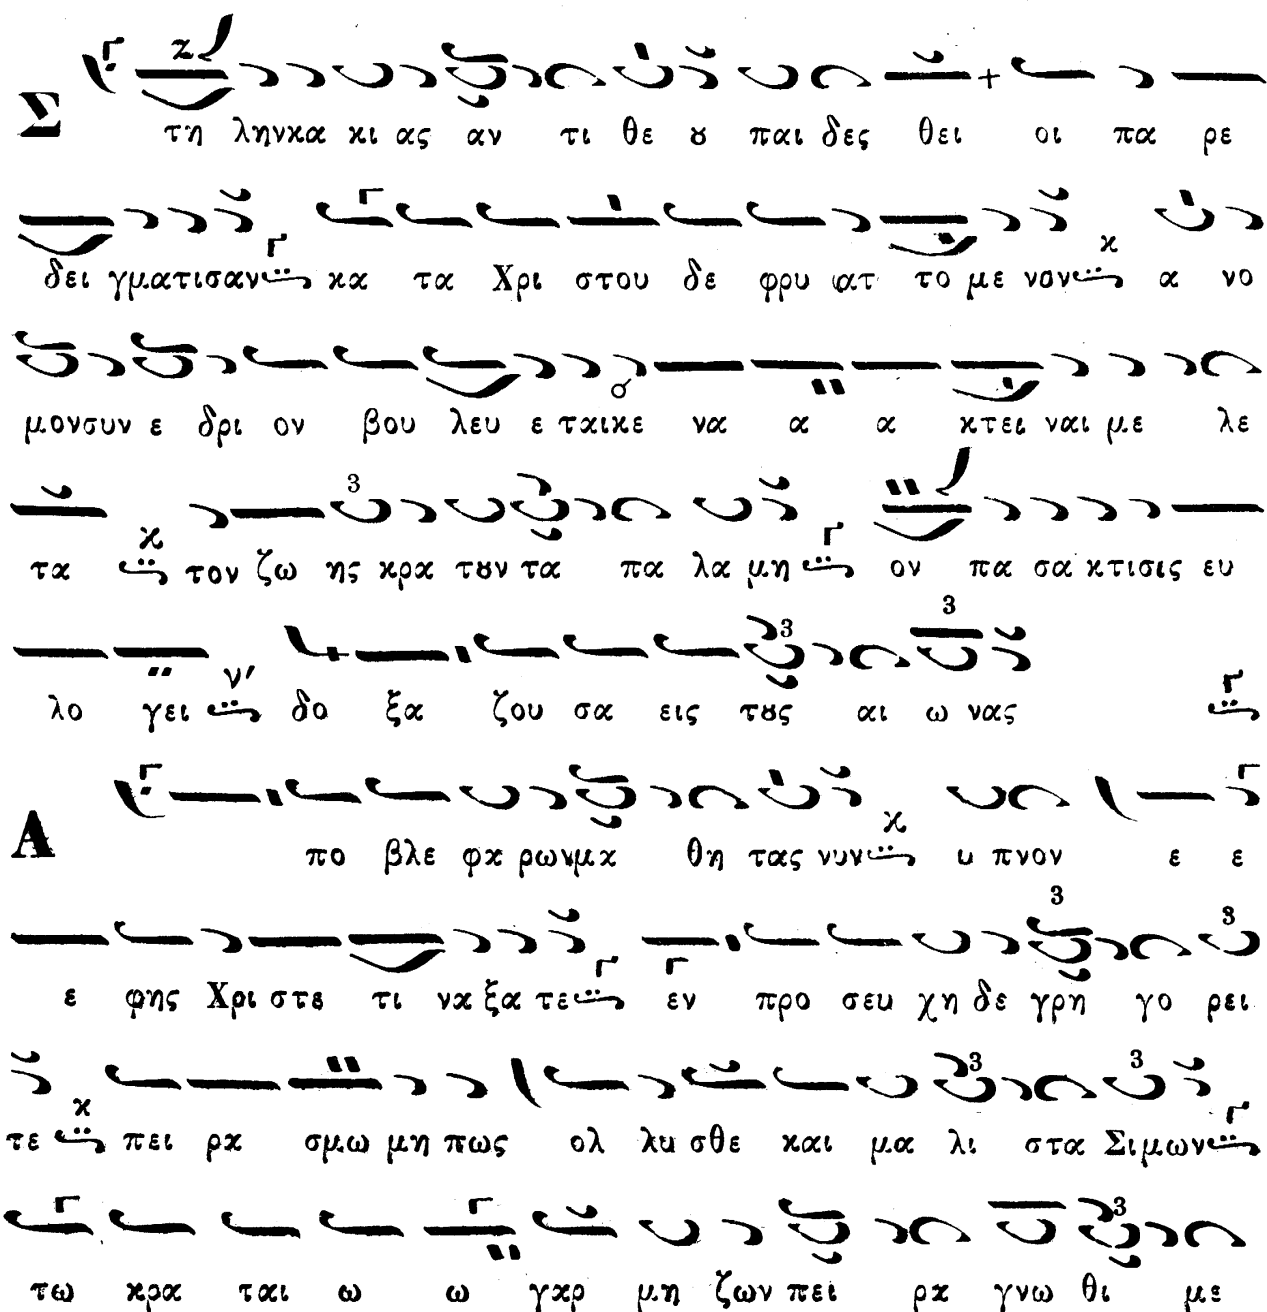 Σ τη ληνκα κι ας αν τι θε ȣ παι δες θει οι πα ρε
δει γματισαν κα τα Χρι στου δε φρυ ατ το με νον α νο
μονσυν ε δρι ον βου λευ ε ταικε να α α κτει ναι με λε
τα τον ζω ης κρα τȣν τα πα λα μη ον πα σα κτισις ευ
λο γει δο ξα ζου σα εις τȣς αι ω νας
Α πο βλε φα ρωνμα θη τας νυν υ πνον ε ε
ε φης Χρι στε τι να ξα τε εν προ σευ χη δε γρη γο ρει
τε πει ρα σμω μη πως ολ λυ σθε και μα λι στα Σιμων
τω κρα ται ω ω γαρ μη ζων πει ρα γνω θι με